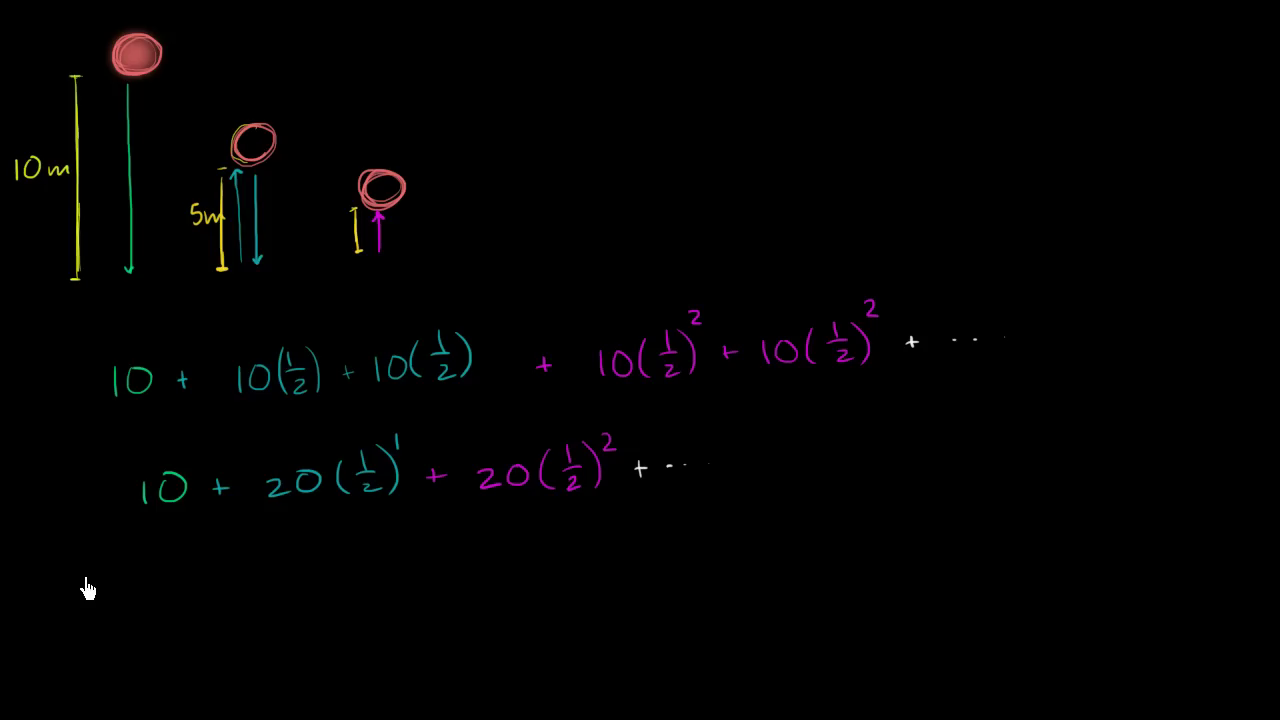 10m
5m
10 + 10(1/2) + 10(1/2) + 10(1/2)² + 10(1/2)² + ...
10 + 20(1/2)¹ + 20(1/2)² + ...